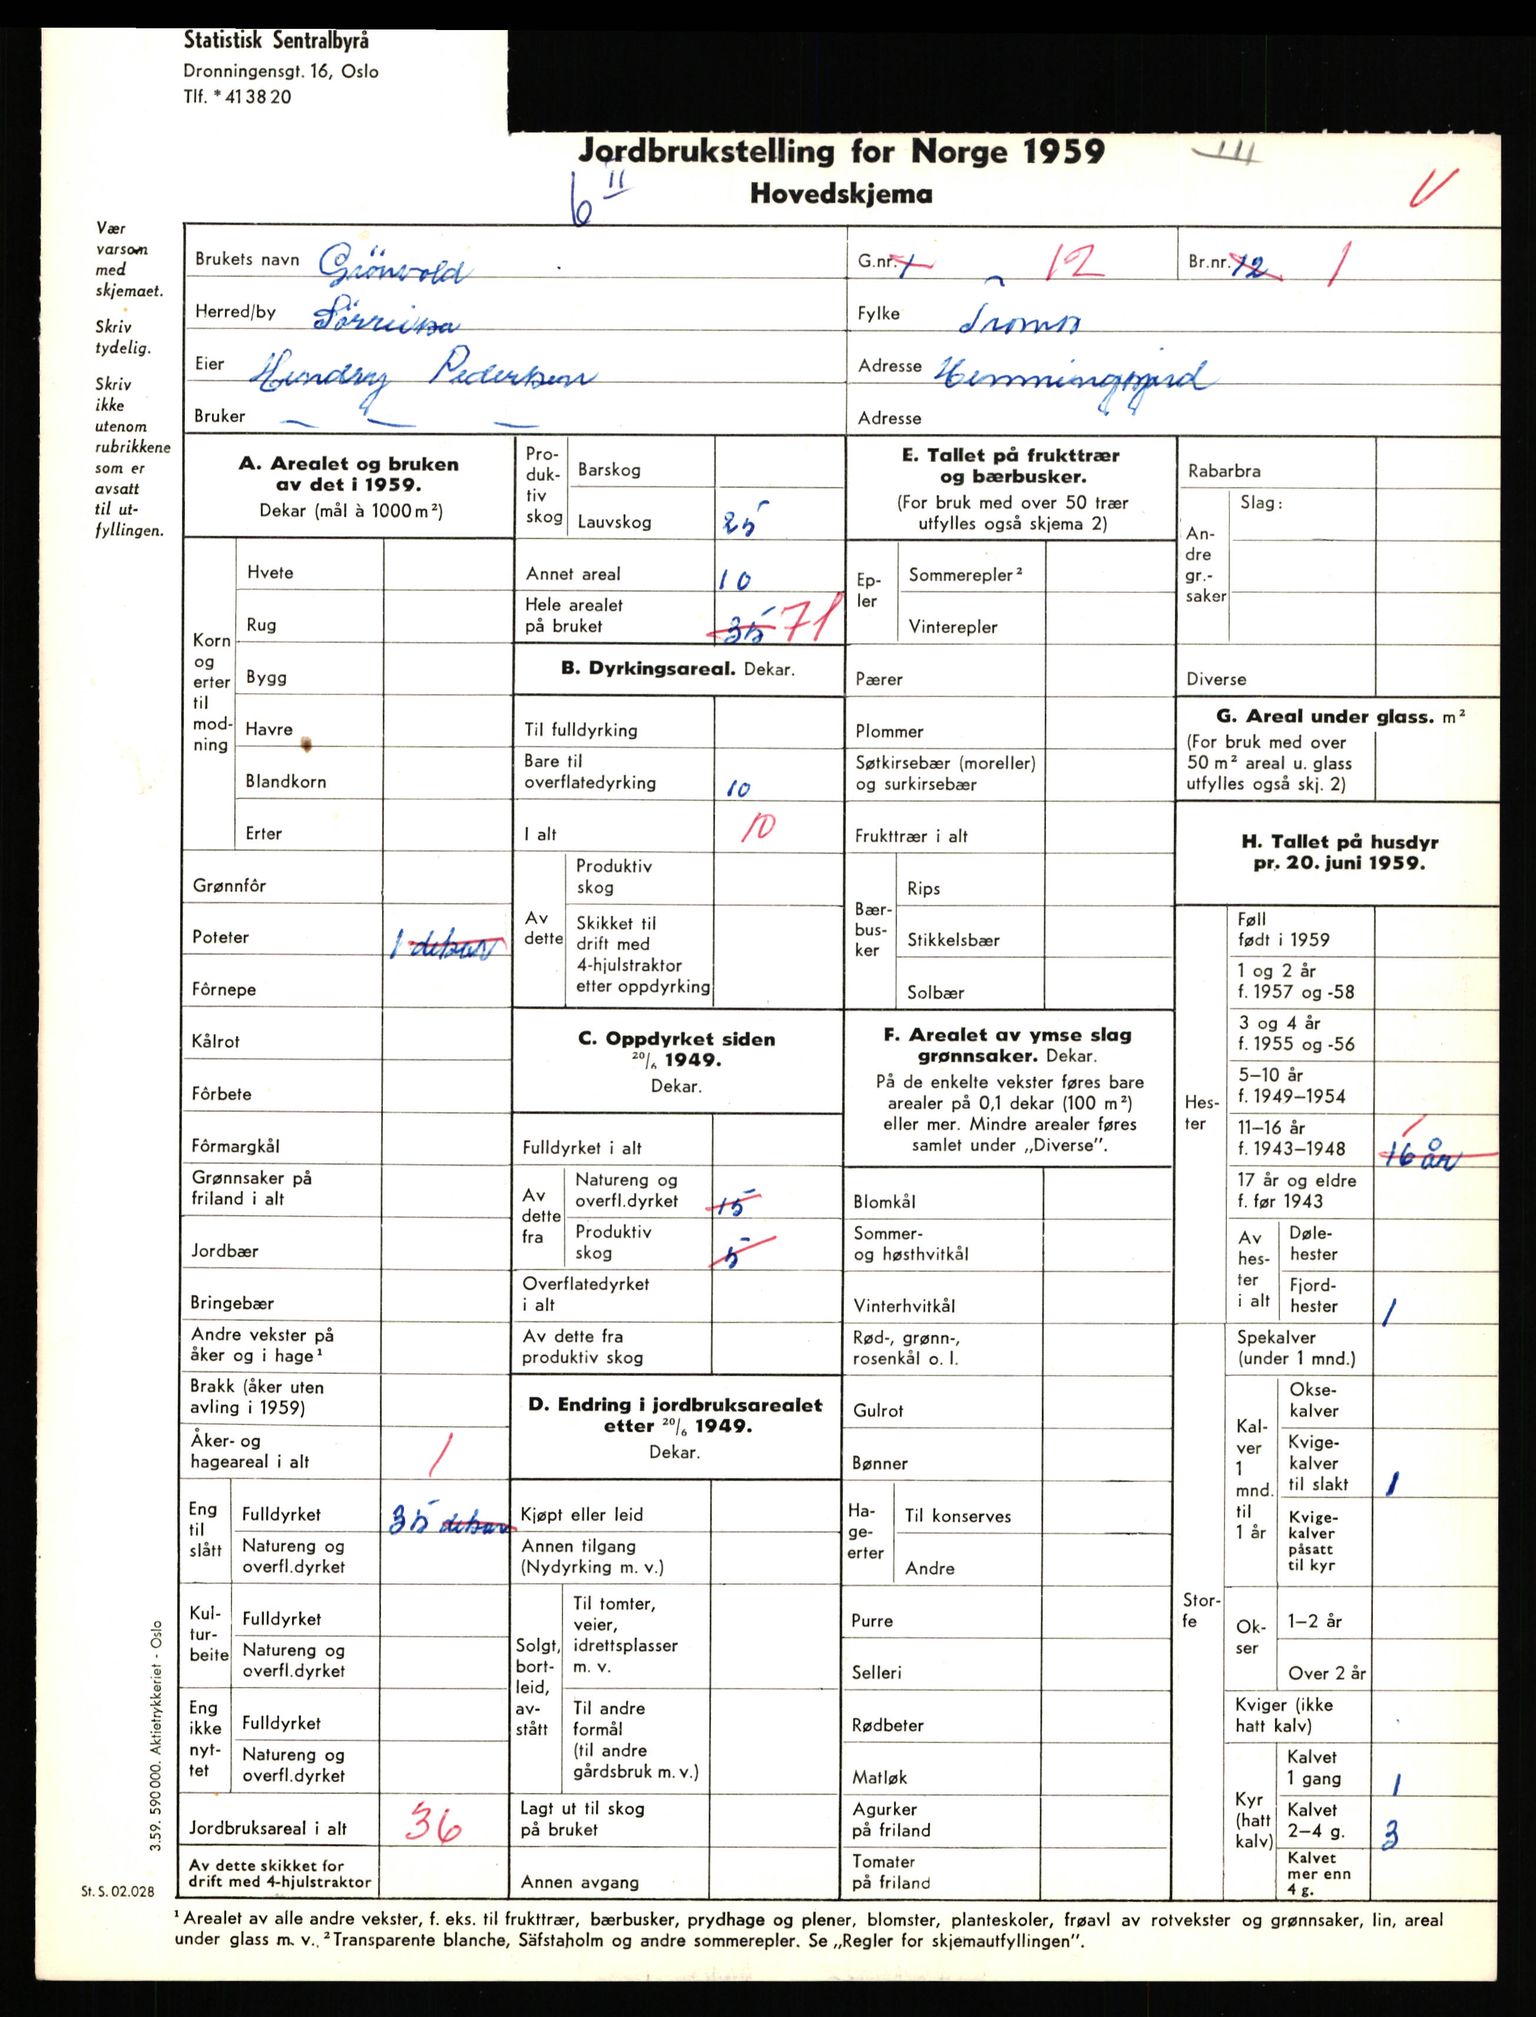 Statistisk Sentralbyrå
Dronningensgt. 16, Oslo
Tlf. * 41 38 20
Jordbrukstelling for Norge 1959
III
6 II
Hovedskjema
V
Vær
varsom
med
skjemaet.
Skriv
tydelig.
Skriv
ikke
utenom
rubrikkene
som er
avsatt
til ut-
fyllingen.
Brukets navn Grönvold
G.nr. 1 12
Br.nr. 12 1
Herred/by Sörreisa
Fylke Troms
Eier Hendry Pedersen
Adresse Hemmingsfjord
Bruker — — —
Adresse
A. Arealet og bruken
av det i 1959.
Dekar (mål à 1000 m²)
Korn
og
erter
til
mod-
ning
Hvete
Rug
Bygg
Havre
Blandkorn
Erter
Grønnfôr
Poteter 1 dekar
Fôrnepe
Kålrot
Fôrbete
Fôrmargkål
Grønnsaker på
friland i alt
Jordbær
Bringebær
Andre vekster på
åker og i hage ¹
Brakk (åker uten
avling i 1959)
Åker- og
hageareal i alt 1
Eng
til
slått
Fulldyrket 35 dekar
Natureng og
overfl.dyrket
Kul-
tur-
beite
Fulldyrket
Natureng og
overfl.dyrket
Eng
ikke
nyt-
tet
Fulldyrket
Natureng og
overfl.dyrket
Jordbruksareal i alt 36
Av dette skikket for
drift med 4-hjulstraktor
Pro-
duk-
tiv
skog
Barskog
Lauvskog 25
Annet areal 10
Hele arealet
på bruket 35 71
B. Dyrkingsareal. Dekar.
Til fulldyrking
Bare til
overflatedyrking 10
I alt 10
Av
dette
Produktiv
skog
Skikket til
drift med
4-hjulstraktor
etter oppdyrking
C. Oppdyrket siden
20/6 1949.
Dekar.
Fulldyrket i alt
Av
dette
fra
Natureng og
overfl.dyrket 15
Produktiv
skog 5
Overflatedyrket
i alt
Av dette fra
produktiv skog
D. Endring i jordbruksarealet
etter 20/6 1949.
Dekar.
Kjøpt eller leid
Annen tilgang
(Nydyrking m. v.)
Solgt,
bort-
leid,
av-
stått
Til tomter,
veier,
idrettsplasser
m. v.
Til andre
formål
(til andre
gårdsbruk m. v.)
Lagt ut til skog
på bruket
Annen avgang
E. Tallet på frukttrær
og bærbusker.
(For bruk med over 50 trær
utfylles også skjema 2)
Ep-
ler
Sommerepler ²
Vinterepler
Pærer
Plommer
Søtkirsebær (moreller)
og surkirsebær
Frukttrær i alt
Bær-
bus-
ker
Rips
Stikkelsbær
Solbær
F. Arealet av ymse slag
grønnsaker. Dekar.
På de enkelte vekster føres bare
arealer på 0,1 dekar (100 m²)
eller mer. Mindre arealer føres
samlet under „Diverse”.
Blomkål
Sommer-
og høsthvitkål
Vinterhvitkål
Rød-, grønn-,
rosenkål o. l.
Gulrot
Bønner
Ha-
ge-
erter
Til konserves
Andre
Purre
Selleri
Rødbeter
Matløk
Agurker
på friland
Tomater
på friland
Rabarbra
An-
dre
gr.-
saker
Slag:
Diverse
G. Areal under glass. m²
(For bruk med over
50 m² areal u. glass
utfylles også skj. 2)
H. Tallet på husdyr
pr. 20. juni 1959.
Hes-
ter
Føll
født i 1959
1 og 2 år
f. 1957 og -58
3 og 4 år
f. 1955 og -56
5–10 år
f. 1949–1954
11–16 år
f. 1943–1948 16 år 1
17 år og eldre
f. før 1943
Av
hes-
ter
i alt
Døle-
hester
Fjord-
hester 1
Stor-
fe
Spekalver
(under 1 mnd.)
Kal-
ver
1
mnd.
til
1 år
Okse-
kalver
Kvige-
kalver
til slakt 1
Kvige-
kalver
påsatt
til kyr
Ok-
ser
1–2 år
Over 2 år
Kviger (ikke
hatt kalv)
Kyr
(hatt
kalv)
Kalvet
1 gang 1
Kalvet
2–4 g. 3
Kalvet
mer enn
4 g.
3.59. 590 000. Aktietrykkeriet - Oslo
St. S. 02.028
¹ Arealet av alle andre vekster, f. eks. til frukttrær, bærbusker, prydhage og plener, blomster, planteskoler, frøavl av rotvekster og grønnsaker, lin, areal
under glass m. v. ² Transparente blanche, Säfstaholm og andre sommerepler. Se „Regler for skjemautfyllingen”.